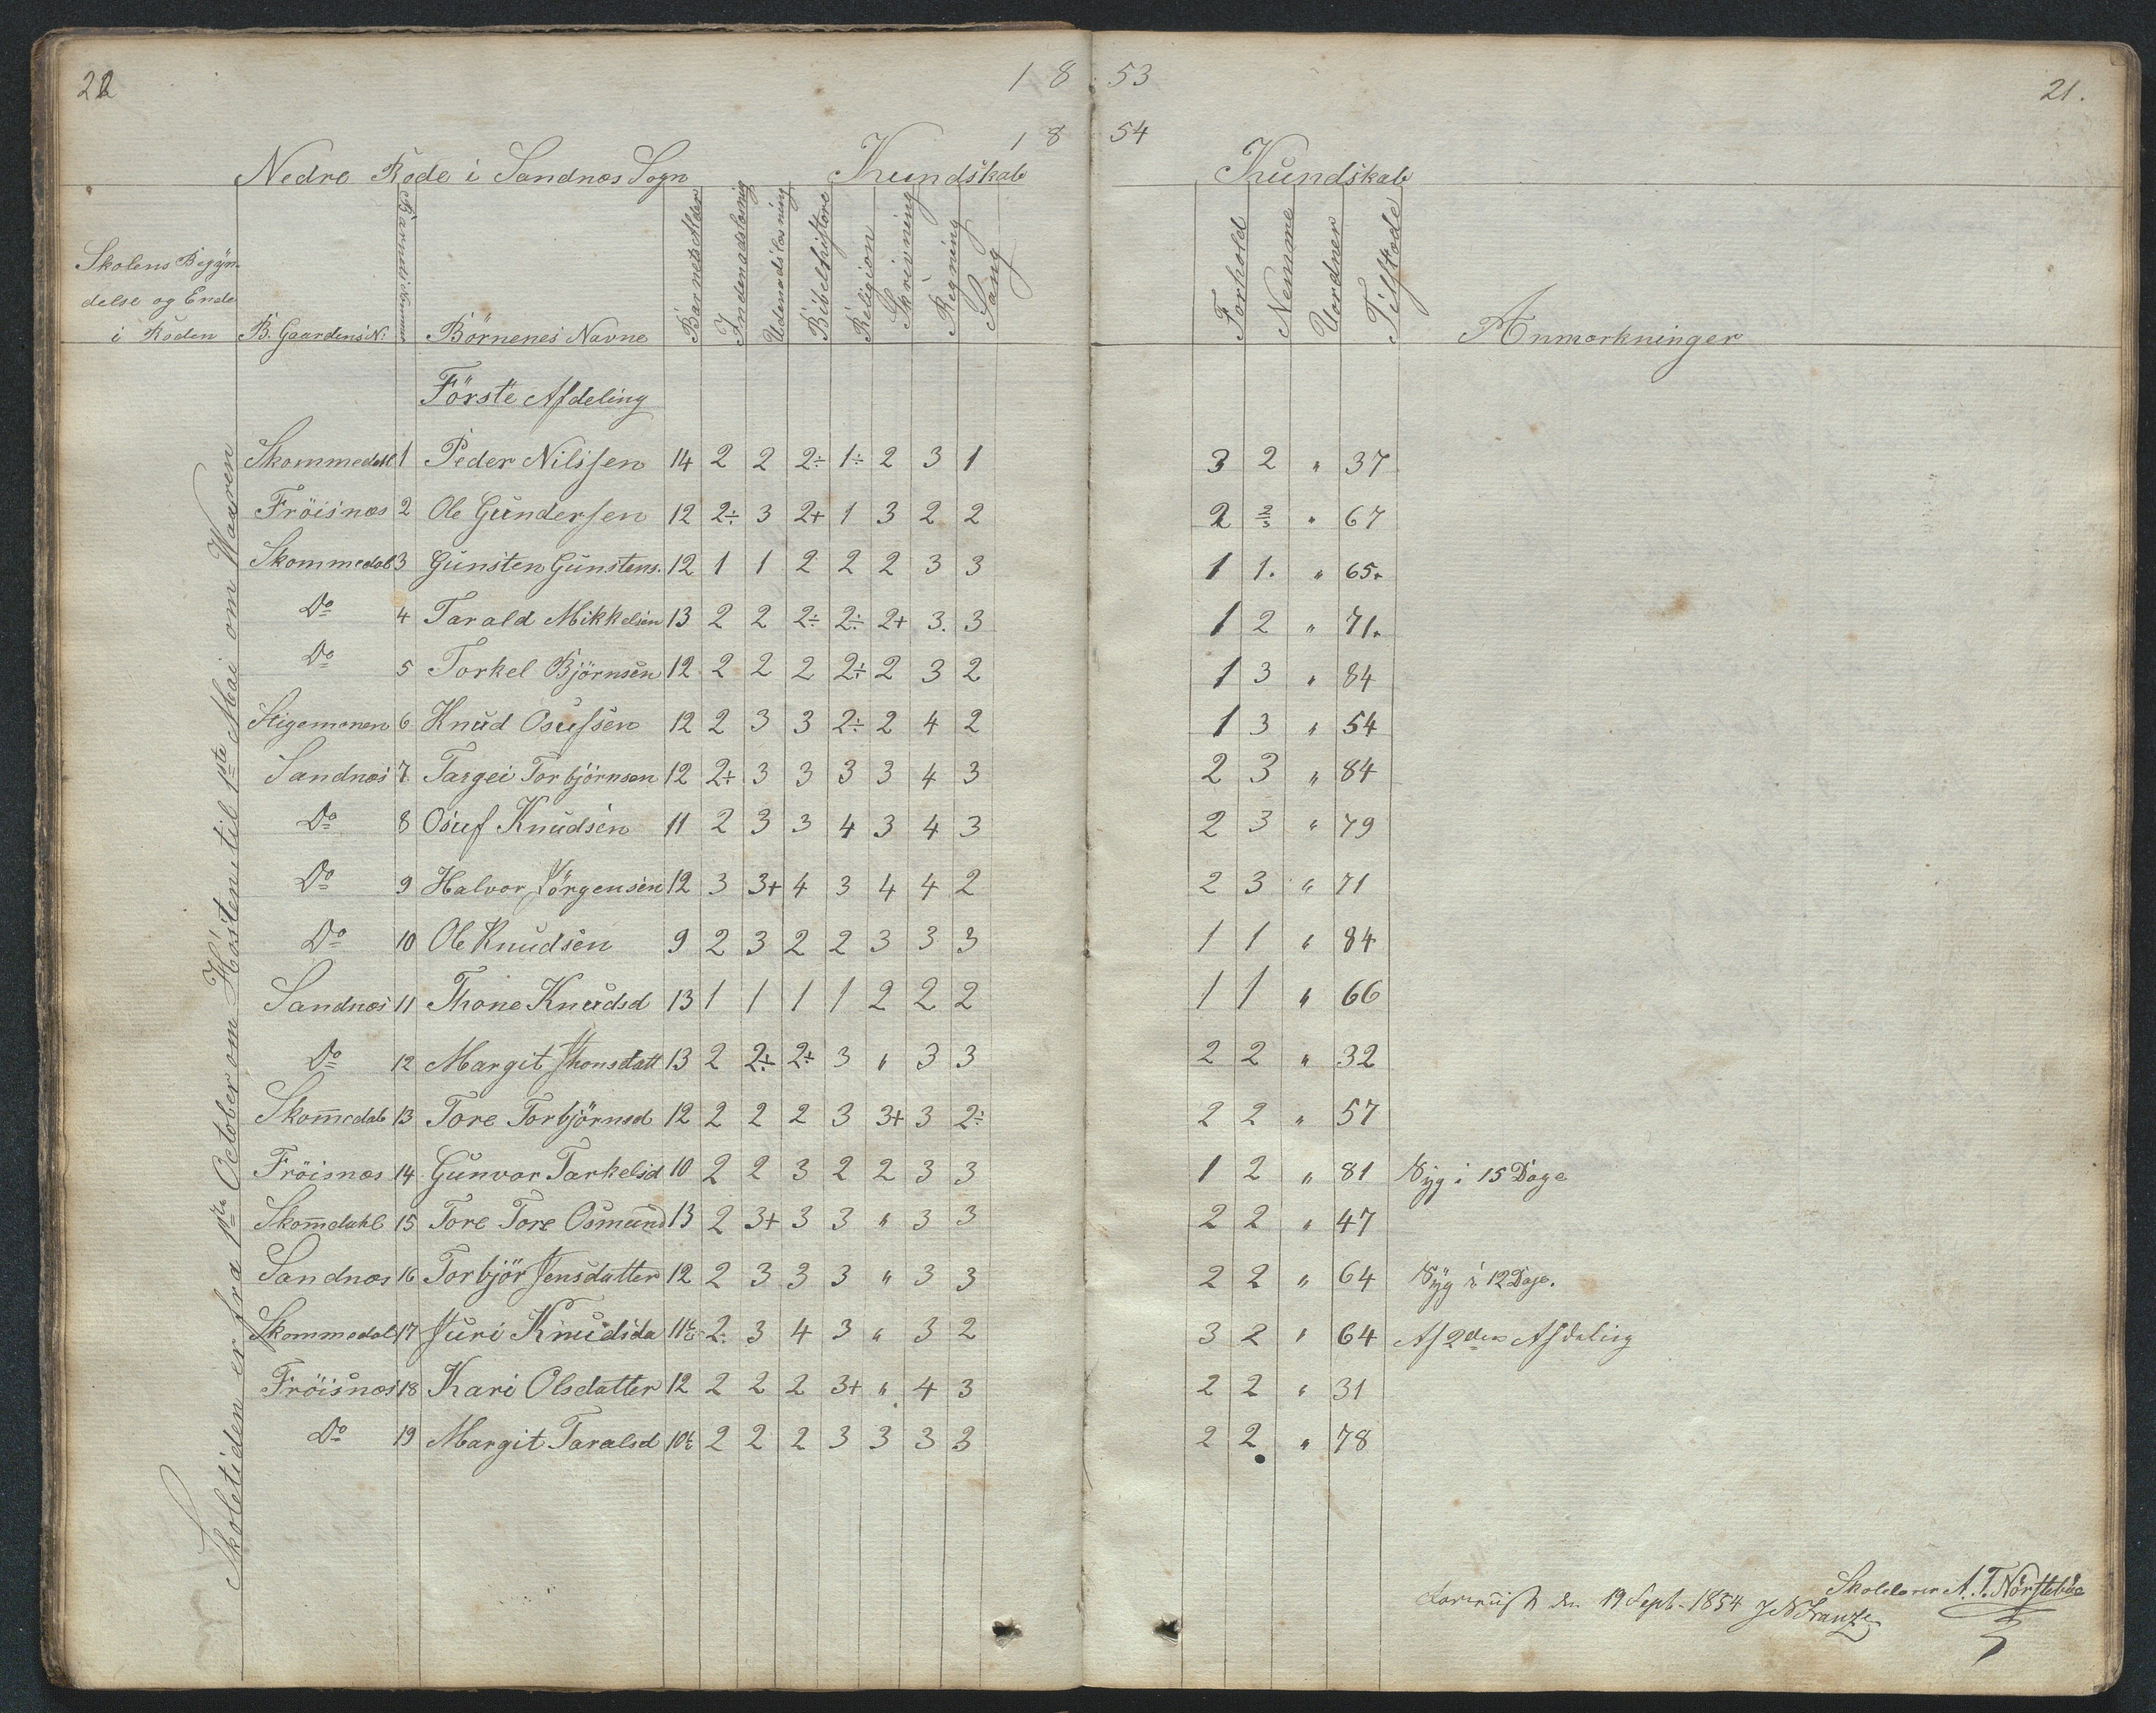 22 18 53 21.
18 54
Nedre Rode i Sandnæs Sogn Kundskab Kundskab
Skolens Begyn-
delse og Ende
i Roden
B. Gaardens N:
Barnets Nummer
Börnenes Navne
Barnets Alder
Indenadslæsning
Udenadslæsning
Bibelhistore
Religion
Skrivning
Regning
Sang
Forhold
Nemme
Uordner
Tilstede
Anmærkninger
Förste Afdeling
Skoletiden er fra 1ste October om Hösten til 1ste Mai om Vaaren
Skommedahl 1 Peder Nilssen 14 2 2 2÷ 1÷ 2 3 1 3 2 " 37
Fröisnæs 2 Ole Gundersen 12 2÷ 3 2+ 1 3 2 2 2 2/3 " 67
Skommedal 3 Gunsten Gunstens. 12 1 1 2 2 2 3 3 1 1. " 65.
Do 4 Tarald Mikkelsen 13 2 2 2÷ 2÷ 2+ 3. 3 1 2 " 71.
Do 5 Torkel Björnsen 12 2 2 2 2÷ 2 3 2 1 3 " 84
Stigemonen 6 Knud Osufsen 12 2 3 3 2÷ 2 4 2 1 3 " 54
Sandnæs 7 Targei Torbjörnsen 12 2÷ 3 3 3 3 4 3 2 3 " 84
Do 8 Osuf Knudsen 11 2 3 3 4 3 4 3 2 3 " 79
Do 9 Halvor Jörgensen 12 3 3+ 4 3 4 4 2 2 3 " 71
Do 10 Ole Knudsen 9 2 3 2 2 3 3 3 1 1 " 84
Sandnæs 11 Thone Knudsd 13 1 1 1 1 2 2 2 1 1 " 66
Do 12 Margit Jhonsdatt 13 2 2÷ 2÷ 3 " 3 3 2 2 " 32
Skom̄edal 13 Tore Torbjörnsd 12 2 2 2 3 3+ 3 2÷ 2 2 " 57
Fröisnæs 14 Gunvor Tarkelsd 10 2 2 3 2 2 3 3 1 2 " 81 Syg i 15 Dage
Skom̄dahl 15 Tore Tore Osmund 13 2 3+ 3 3 " 3 3 2 2 " 47
Sandnæs 16 Torbjör Jensdatter 12 2 3 3 3 " 3 3 2 2 " 64 Syg i 12 Dage.
Skommedal 17 Juri Knudsda 11½ 2÷ 3 4 3 " 3 2 3 2 " 64 Af 2den Afdeling
Fröisnæs 18 Kari Olsdatter 12 2 2 2 3+ " 4 3 2 2 " 31
Do 19 Margit Taralsd 10½ 2 2 2 3 3 3 3 2 2 " 78
Skolelærer A. T. Nörstebøe
den 19 Sept. 1854